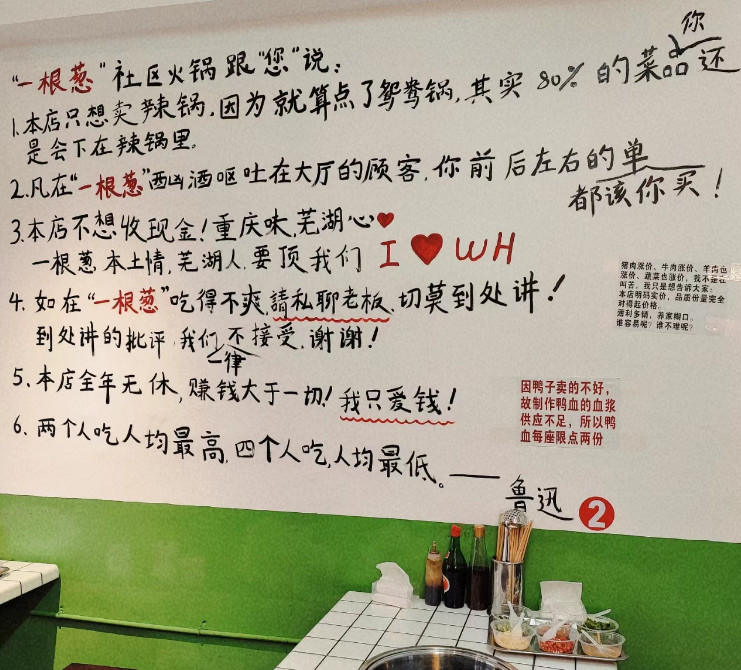 "一根葱"社区火锅跟"您"说：
1.本店只想卖辣锅，因为就算点了鸳鸯锅，其实80%的菜品你还
是会下在辣锅里。
2.凡在"一根葱"酗酒呕吐在大厅的顾客，你前后左右的单
都该你买！
3.本店不想收现金！重庆味，芜湖心
一根葱，本土情，芜湖人，要顶我们 I❤WH
4.如在"一根葱"吃得不爽，請私聊老板，切莫到处讲！
到处讲的批评，我们一律不接受，谢谢！
5.本店全年无休，赚钱大于一切！我只爱钱！
6、两个人吃人均最高，四个人吃，人均最低。——
鲁迅 2
猪肉涨价、牛肉涨价、羊肉也
涨价、蔬菜也涨价，我不是在
叫苦，我只是想告诉大家：
本店明码实价，品质份量完全
对得起价格。
薄利多销，养家糊口。
谁容易呢？谁不难呢？
因鸭子卖的不好，
故制作鸭血的血浆
供应不足，所以鸭
血每座限点两份